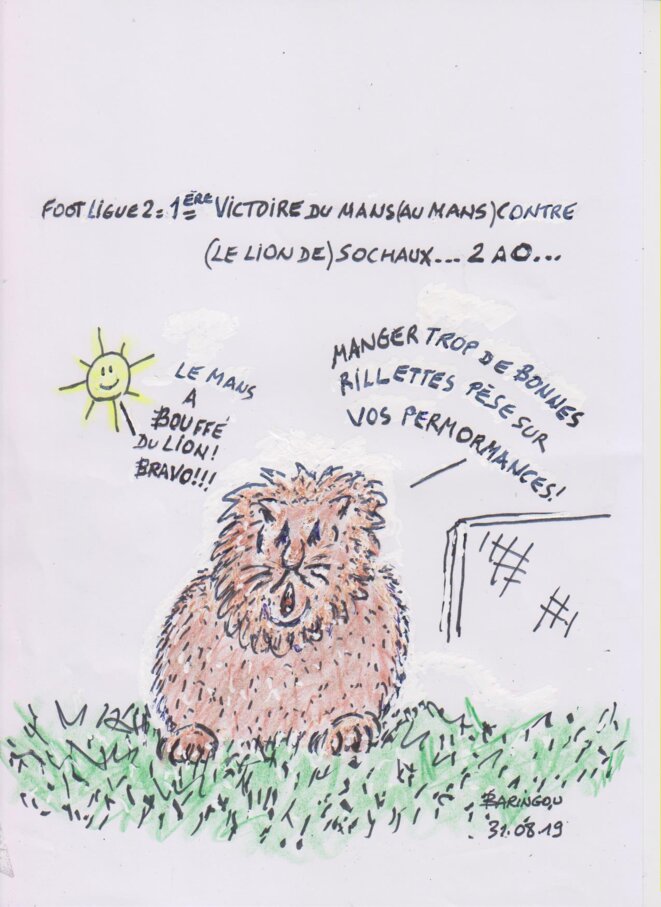 FOOT LIGUE 2 = 1ÈRE VICTOIRE DU MANS (AU MANS) CONTRE
(LE LION DE) SOCHAUX... 2 A 0...
LE MANS
A
BOUFFÉ
DU LION!
BRAVO!!!
MANGER TROP DE BONNES
RILLETTES PÈSE SUR
VOS PERMORMANCES!
BARINGOU
31.08.19